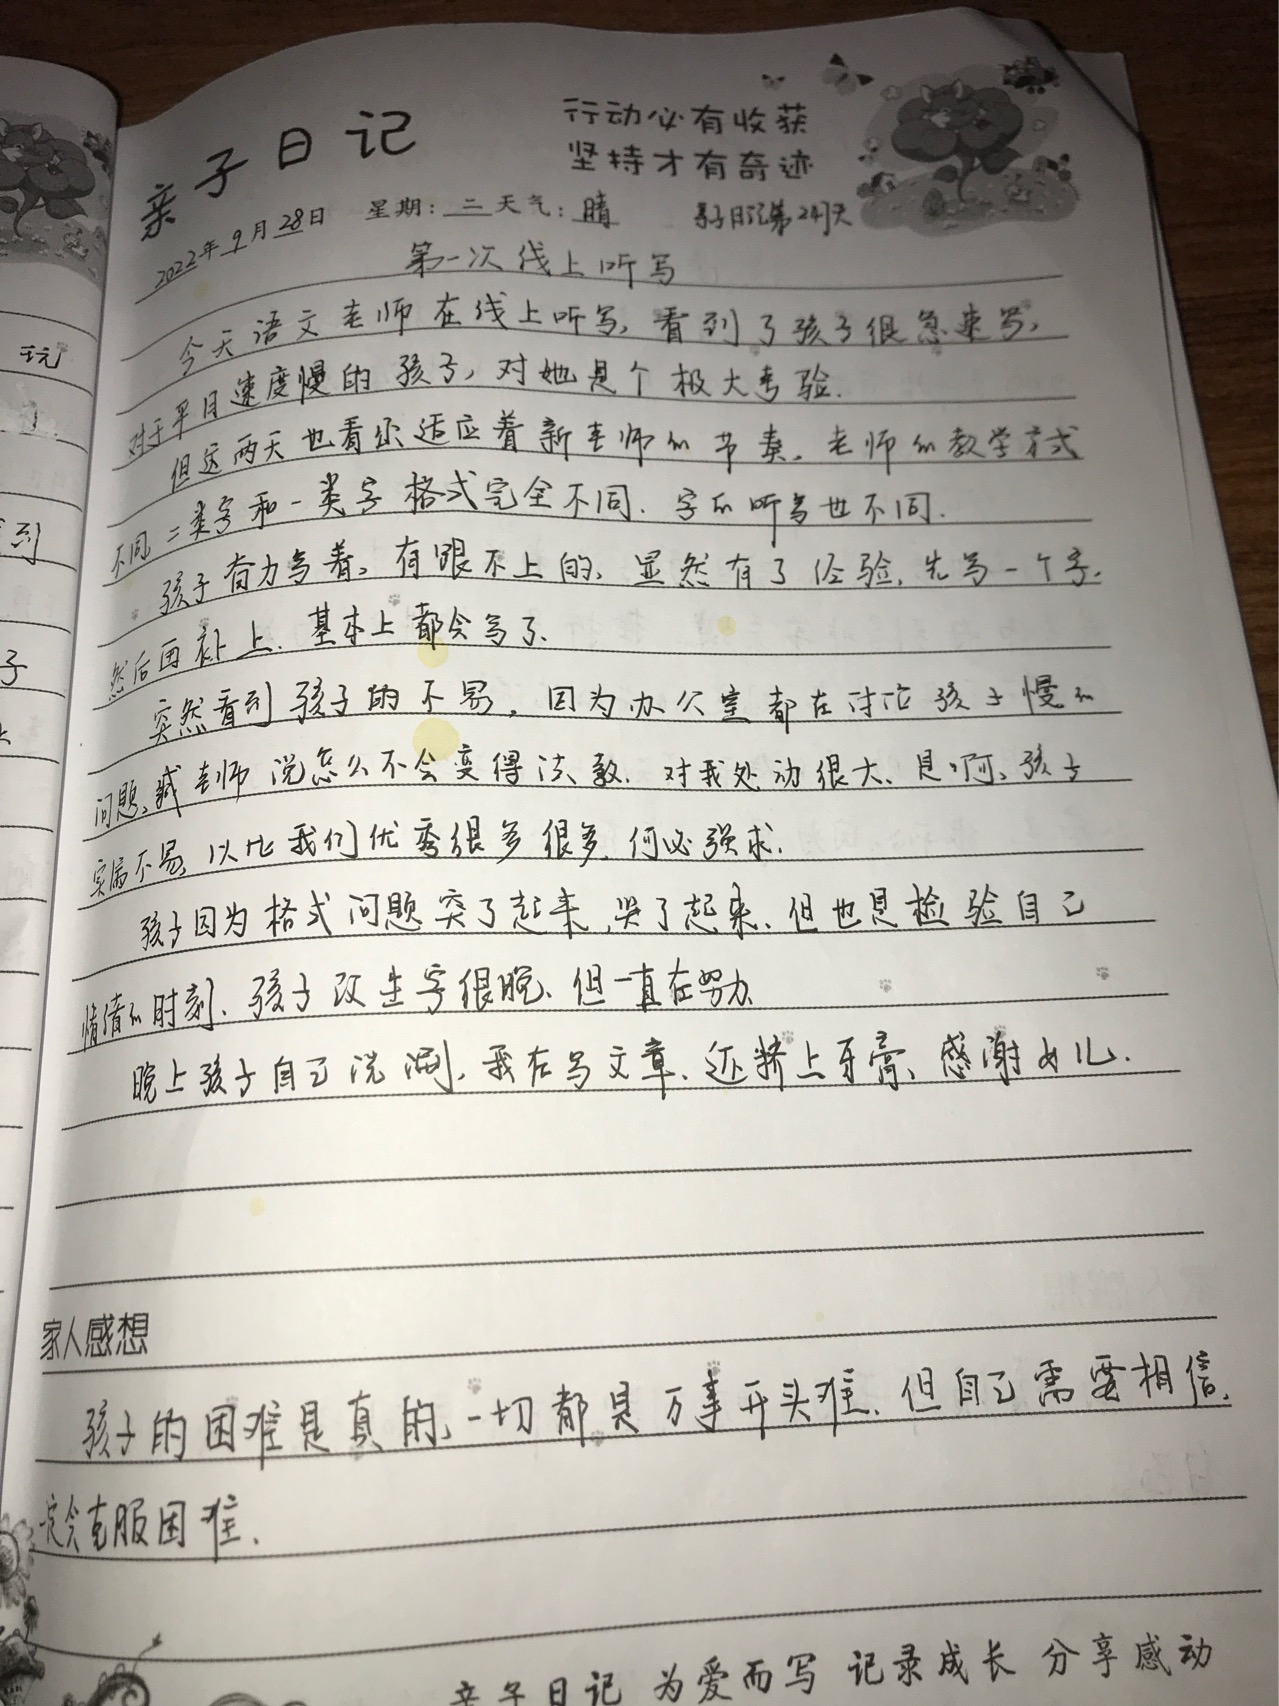 亲子日记
行动必有收获
坚持才有奇迹
2022年9月28日 星期:二 天气:晴 亲子日记第247天
第一次线上听写
今天语文老师在线上听写,看到了孩子很急速写,
对于平日速度慢的孩子,对她是个极大考验.
但这两天也看你适应着新老师的节奏.老师的教学方式
不同,二类字和一类字格式完全不同.字的听写也不同.
孩子奋力写着,有跟不上的,显然有了经验,先写一个字.
然后再补上.基本上都会写了.
突然看到孩子的不易,因为办公室都在讨论孩子慢的
问题,臧老师说怎么不会变得法教.对我处动很大.是啊,孩子
实属不易,以比我们优秀很多很多,何必强求.
孩子因为格式问题突了起来,哭了起来,但也是检验自己
情绪的时刻.孩子改生字很晚,但一直在努力
晚上孩子自己洗涮,我在写文章,还挤上牙膏,感谢女儿.
家人感想
孩子的困难是真的,一切都是万事开头难,但自己需要相信,
一定会克服困难.
亲子日记 为爱而写 记录成长 分享感动
玩
到
子